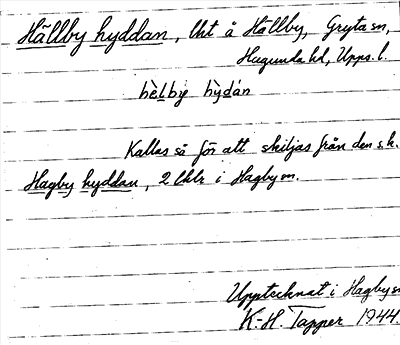 Hällby hyddan, lht å Hällby, Gryta sn,
Hagunda hd, Upps. l.
hèlby hỳdán
Kallas så för att skiljas från den s.k.
Hagby hyddan, 2 lhtr i Hagby sn.
Upptecknat i Hagby sn
K.-H. Tapper 1944.